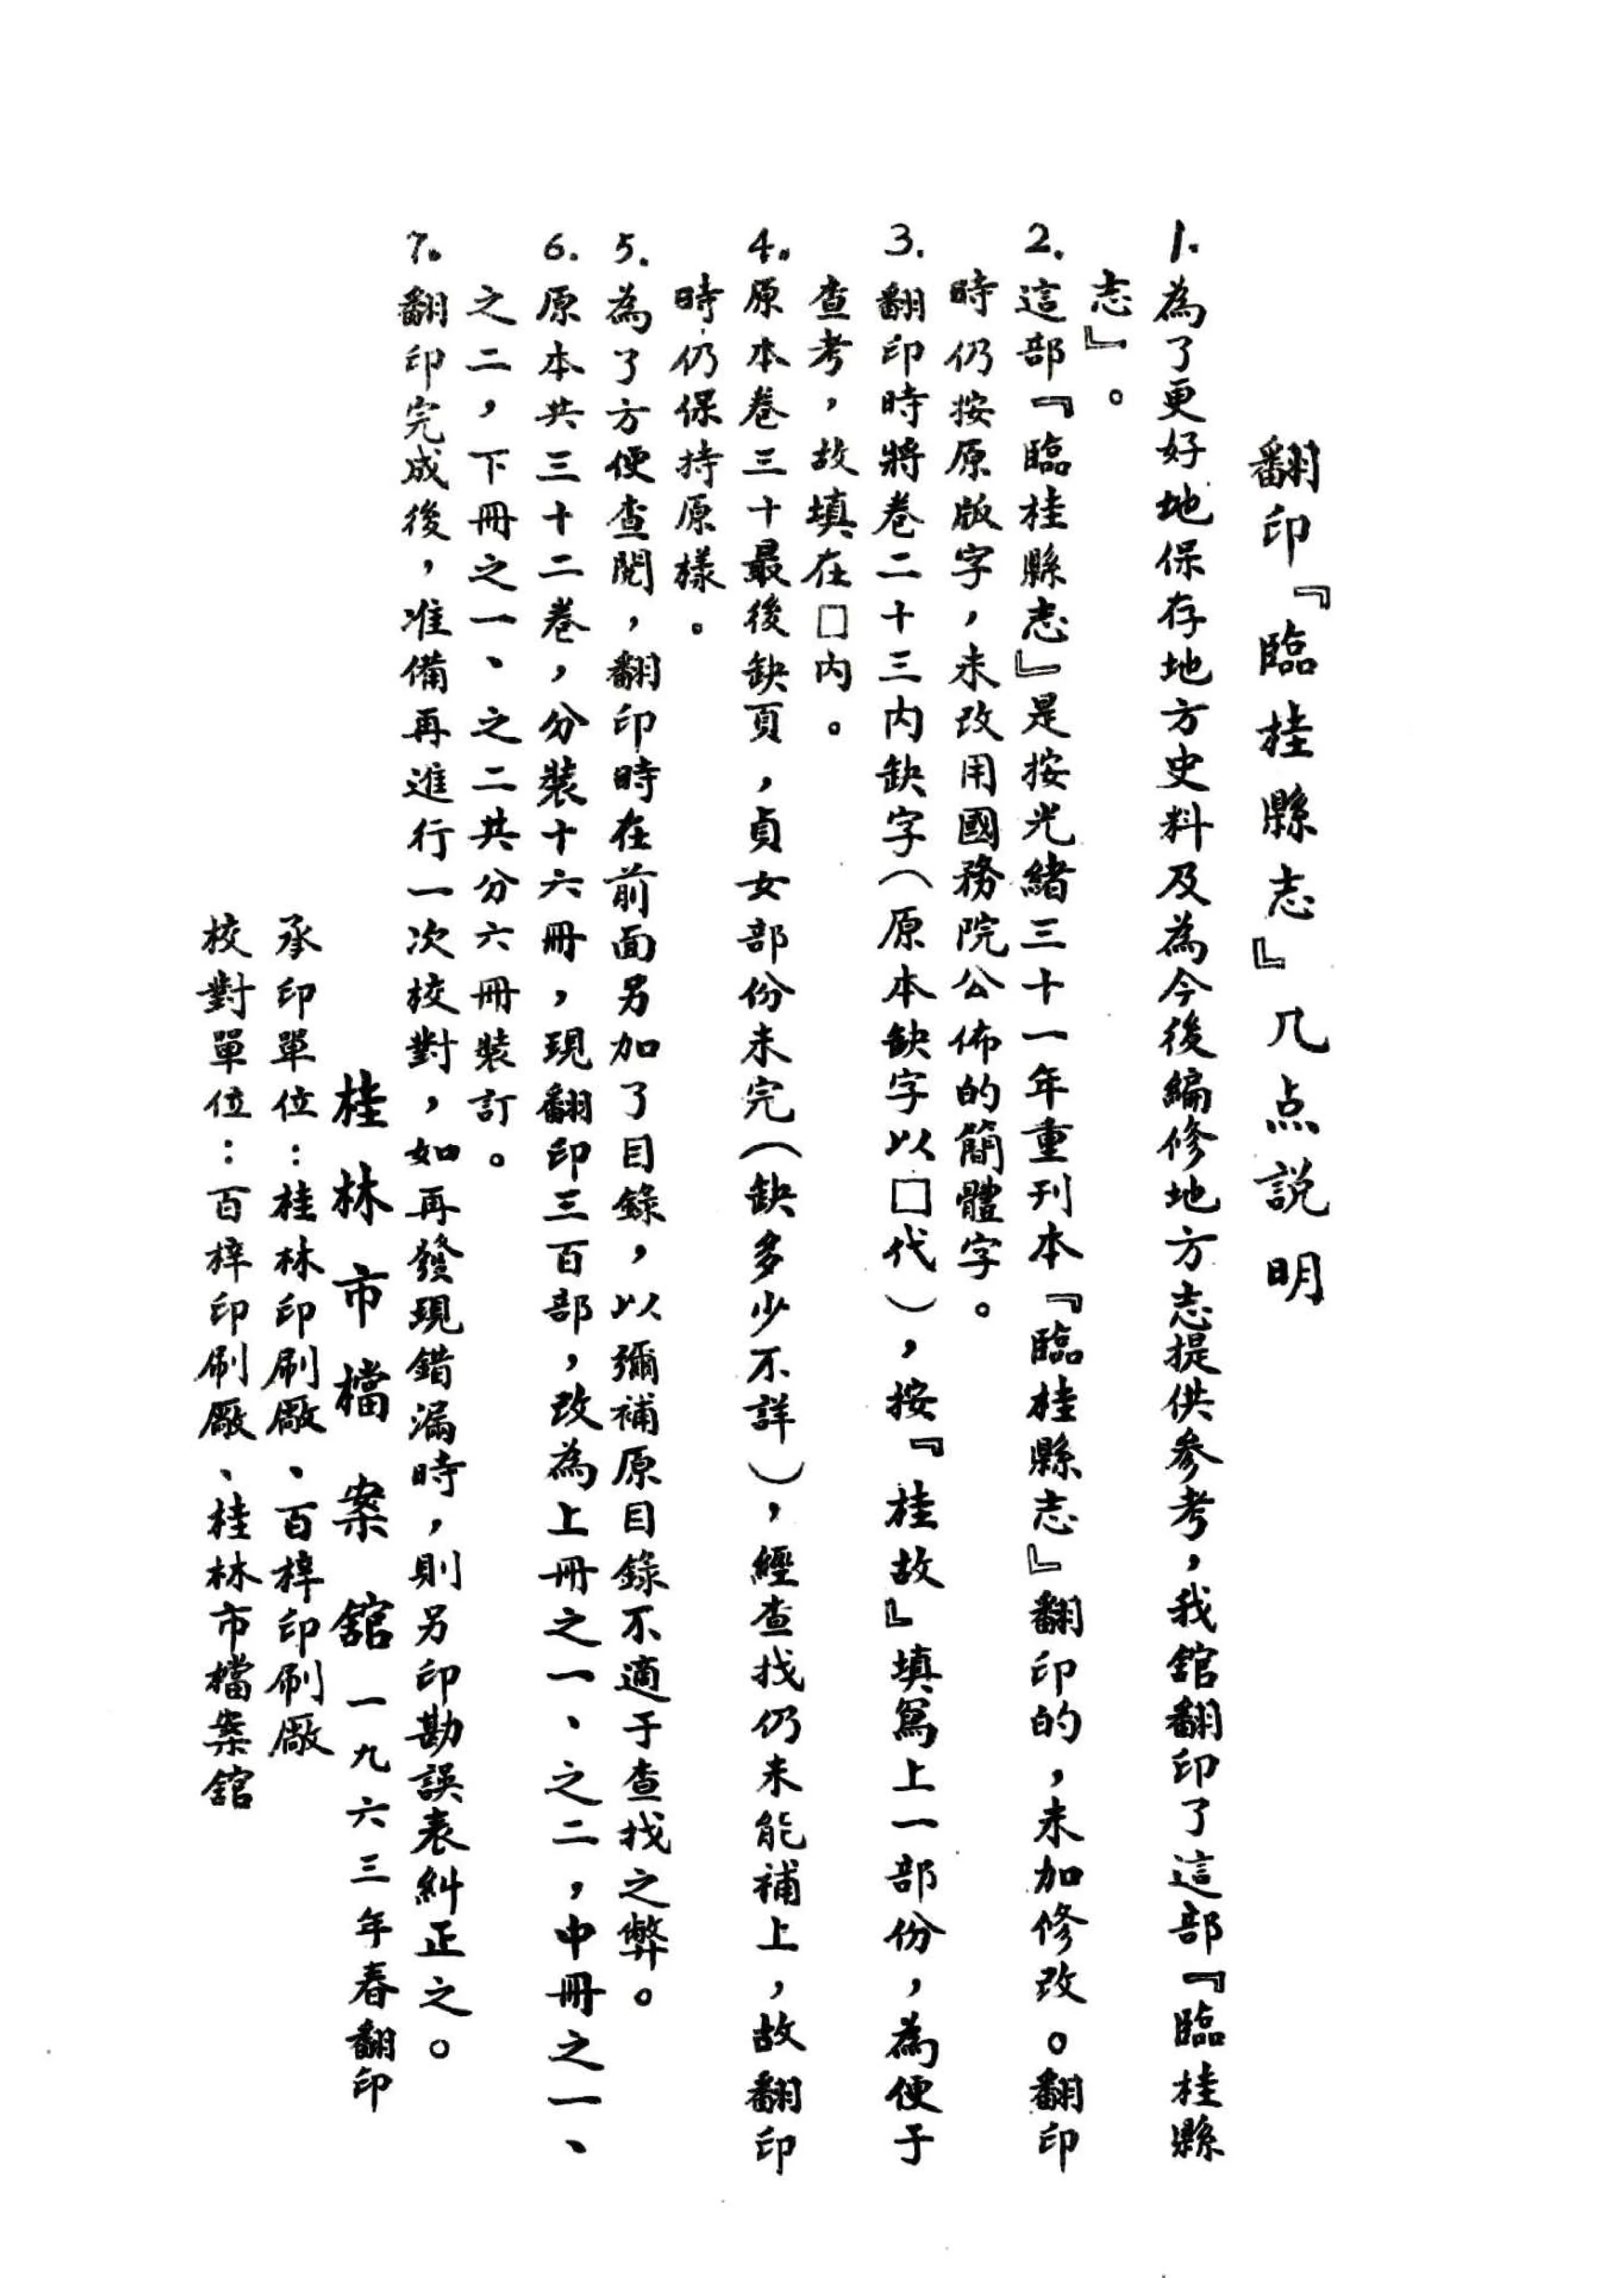 翻印『臨桂縣志』几点説明
1.為了更好地保存地方史料及為今後編修地方志提供參考，我舘翻印了這部『臨桂縣
志』。
2.這部『臨桂縣志』是按光緒三十一年重刊本『臨桂縣志』翻印的，未加修改。翻印
時仍按原版字，未改用國務院公佈的簡體字。
3.翻印時將卷二十三内缺字（原本缺字以□代），按『桂故』填寫上一部份，為便于
查考，故填在□内。
4.原本卷三十最後缺頁，貞女部份未完（缺多少不詳），經查找仍未能補上，故翻印
時仍保持原樣。
5.為了方便查閲，翻印時在前面另加了目錄，以彌補原目錄不適于查找之弊。
6.原本共三十二卷，分裝十六冊，現翻印三百部，改為上冊之一、之二，中冊之一、
之二，下冊之一、之二共分六冊裝訂。
7.翻印完成後，准備再進行一次校對，如再發現錯漏時，則另印勘誤表糾正之。
桂林市檔案舘一九六三年春翻印
承印單位：桂林印刷廠、百梓印刷廠
校對單位：百梓印刷廠、桂林市檔案舘